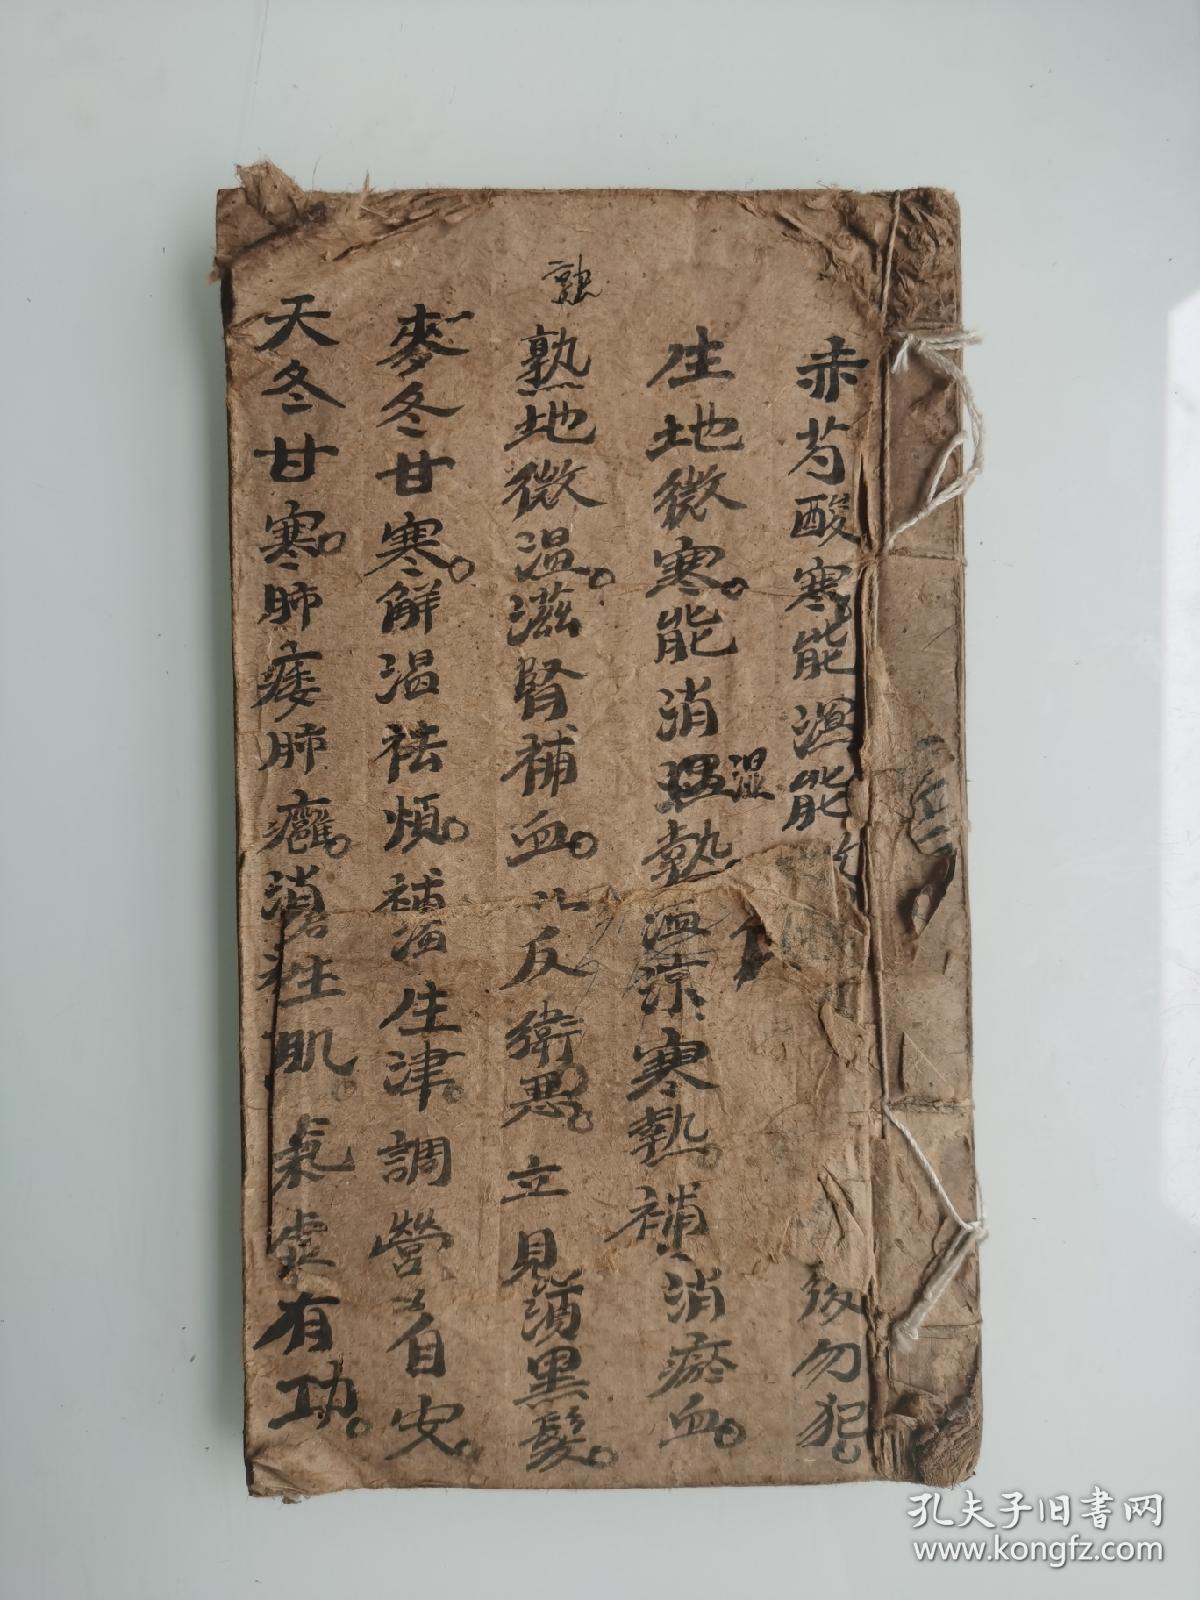 赤芍酸寒能溫能
後勿犯
生地微寒能消溫熱溫涼寒熱補消瘀血
濕
熟
熟地微溫滋腎補血反衛思立見鬚黑髮
麥冬甘寒解渴祛煩補生津調營自安
天冬甘寒肺痿肺癰消痰生肌氣虛有功
孔夫子旧书网
www.kongfz.com